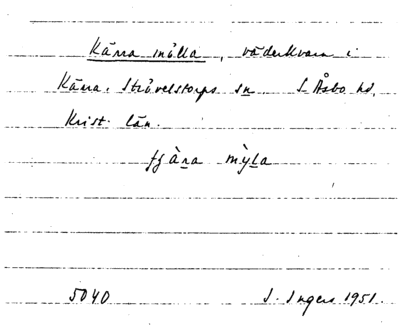 Kärra mölla, väderkvarn i
Kärra. Strövelstorps sn S. Åsbo hd.
Krist. län.
5040 S. Ingers 1951.